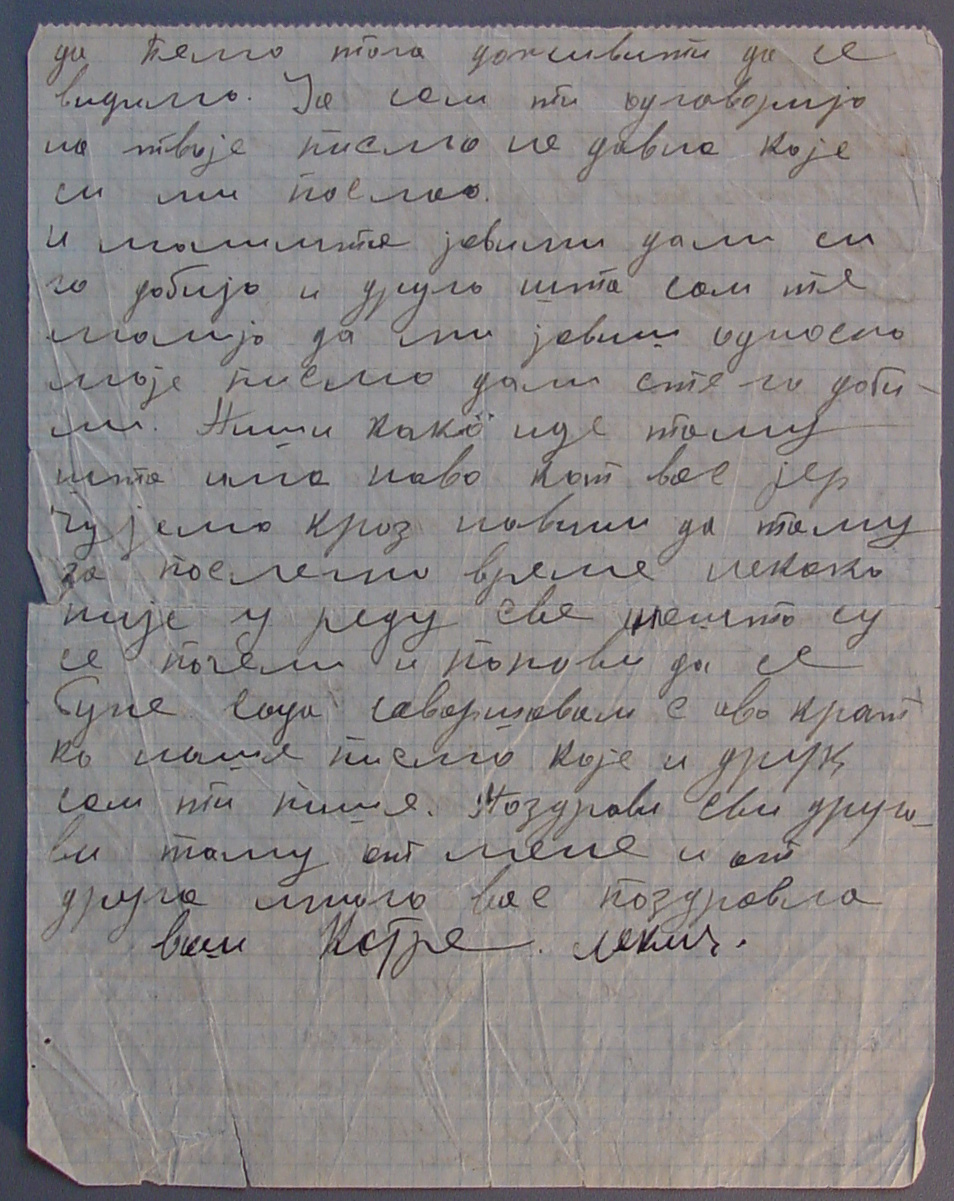 да ћемо тога доживити да се
видимо. Ја сам ти одговоријо
на твоје писмо не давно које
си ми послао.
и молимте јавими дали си
го добијо и друго што сам те
молијо да ми јавиш односно
моје писмо дали сте го доби-
ли. Пиши како иде тамо
што има ново кот вас јер
чујемо кроз новини да тамо
за последно време некако
није у реду све нешто су
се почели и попови да се
буне сада савршавам с ово крат
ко наше писмо које и друк
сам ти пише. Поздрави сви друго-
ви таму от мене и от
друга много вас поздравла
ваш Лекич.